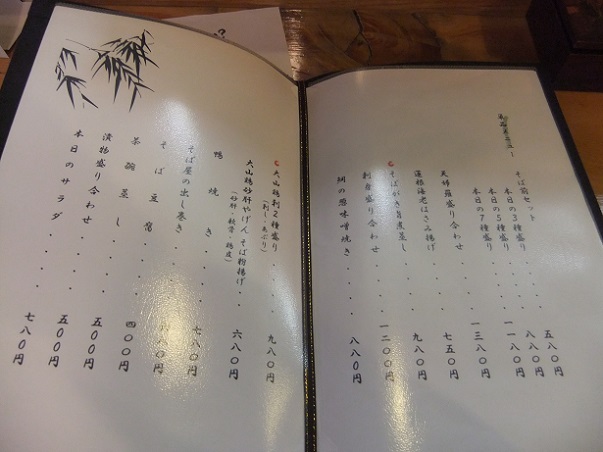 そば前セット・・・・五八〇円
本日の3種盛り・・・・八八〇円
本日の5種盛り・・・一一八〇円
本日の7種盛り・・・一三八〇円
天婦羅盛り合わせ・・・七五〇円
蓮根海老はさみ揚げ・・・九八〇円
そばがき旨煮
刺身盛り合わせ・・・一二〇〇円
鯛の葱味噌焼き・・・八八〇円
大山鶏刺2種盛り・・・九八〇円
(刺し・炙ぶり)
大山鶏砂肝やげん そば粉揚げ・・六八〇円
鴨焼き・・・
そば屋の出し巻き・・・七八〇円
そば豆腐・・・
茶碗蒸し・・・四〇〇円
漬物盛り合わせ・・・五〇〇円
本日のサラダ・・・五〇〇円
七八〇円